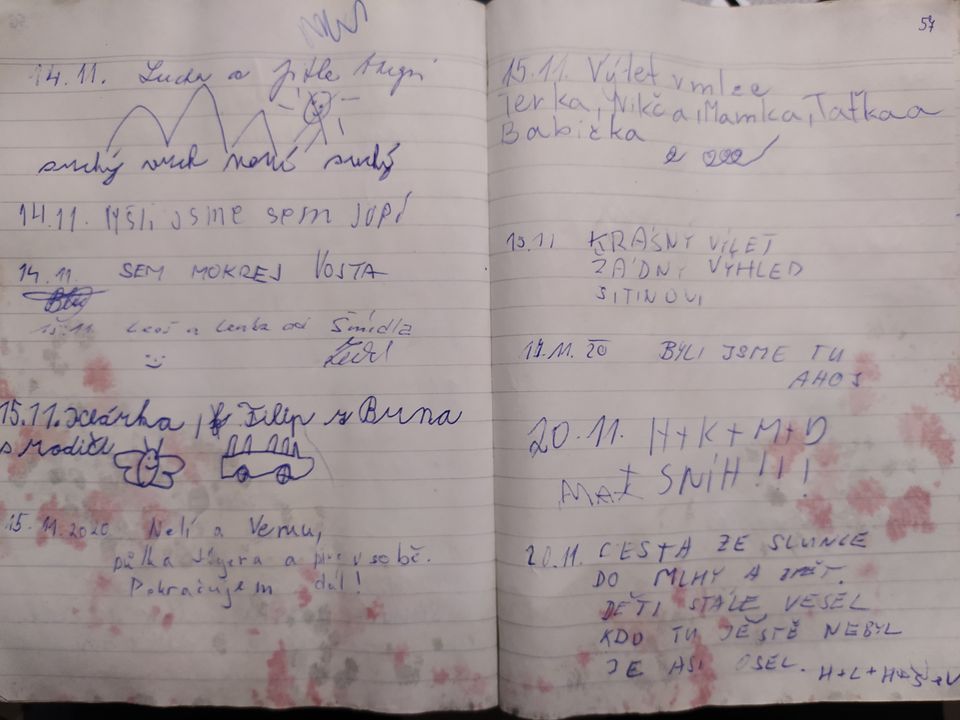 14.11. Lucka a Jitka
suchý vrch není suchý
14.11. Byli jsme sem
14.11 SEM MOKREJ VOSTA
15.11 Leoš a Lenka od Šmidla
15.11. Klárka, Filip z Brna
s rodiči
15.11.2020 Neli a Verou,
půlka a pivo v sobě.
Pokračujem dál!
57
15.11. Výlet v mlze
Terka, Nikča, Mamka, Taťka a
Babička
15.11 KRÁSNÝ VÍLET
ŽÁDNÝ VÝHLED
ŠITINOVI
19.11.20 BYLI JSME TU
AHOJ
20.11. H+K+M+D
MAX SNÍH!!!
20.11. CESTA ZE SLUNCE
DO MLHY A ZPĚT.
DĚTI STÁLE VESEL
KDO TU JEŠTĚ NEBYL
JE ASI OSEL. H+L+H+Š+V